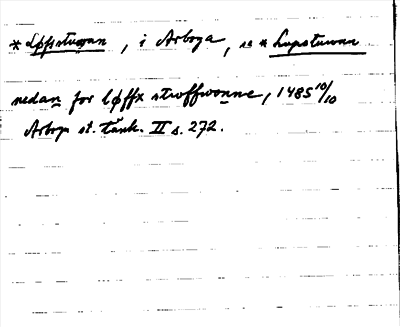 *Løffstuwan, i Arboga, se *Lupstuwan
nedan for løffx stwffwonne, 1485 10/10
Arboga st. tänk. II s. 272.